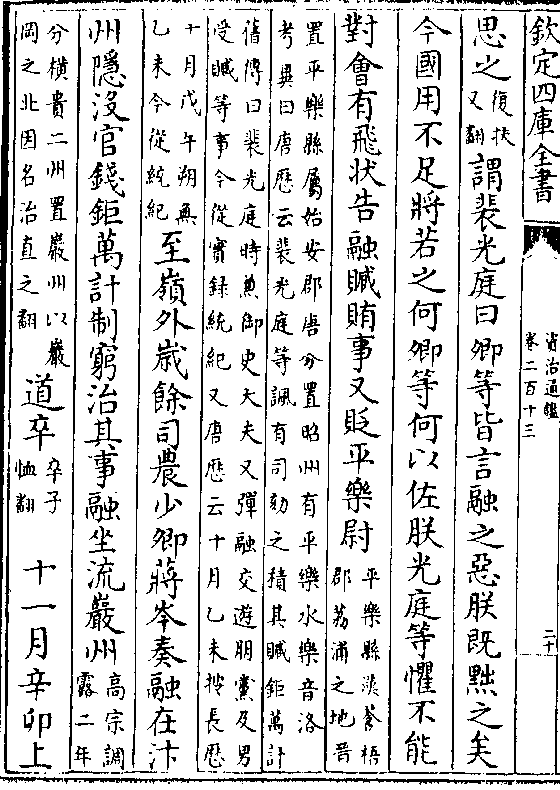 欽定四庫全書
資治通鑑
卷二百十三
二十
思之復扶又翻謂裴光庭曰卿等皆言融之惡朕既黜之矣
今國用不足將若之何卿等何以佐朕光庭等懼不能
對會有飛狀告融贓賄事又貶平樂尉平樂縣漢蒼梧郡荔浦之地晉
置平樂縣屬始安郡唐分置昭州有平樂水樂音洛
考異曰唐歴云裴光庭等諷有司劾之積其贓鉅萬計
舊傳曰裴光庭時兼御史大夫又彈融交遊朋黨及男
受贓等事今從實録統紀又唐歴云十月乙未按長歴
十月戊午朔無乙未今從統紀至嶺外歳餘司農少卿蔣岑奏融在汴
州隱沒官錢鉅萬計制窮治其事融坐流巖州高宗調露二年
分橫貴二州置巖州以巖岡之北因名治直之翻道卒卒子恤翻十一月辛卯上